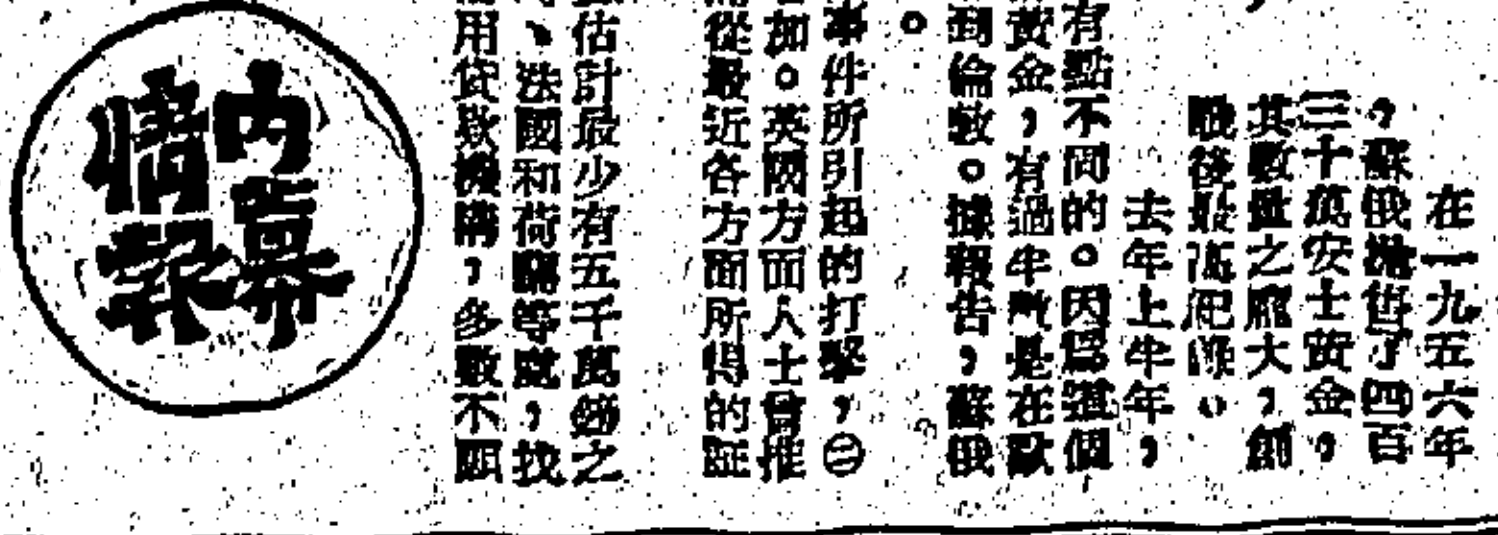 在一九五六年
,蘇俄拋售了四百
三十萬安士黃金,
其數量之龐大,創
戰後最高紀錄。
去年上半年,
有點不同的。因爲這個
黃金,有過半數是在歐
到倫敦。據報告,蘇俄
。
事件所引起的打擊,㊂
加。英國方面人士曾推
從最近各方面所得的証
估計最少有五千萬鎊之
、法國和荷蘭等處,找
用貸款機構,多數不願
內幕
情報